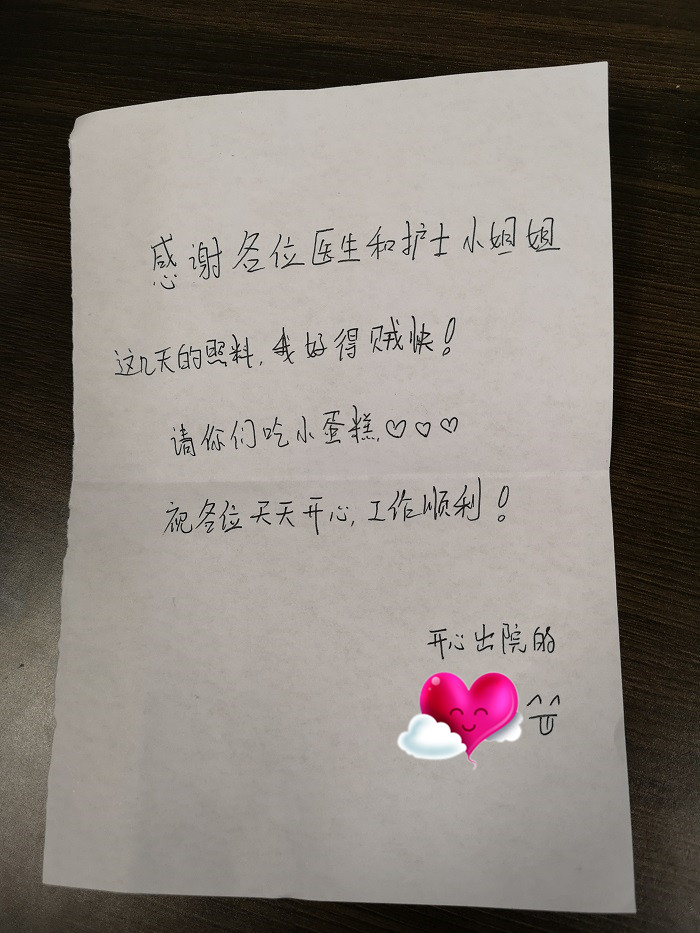 感谢各位医生和护士小姐姐
这几天的照料,我好得贼快!
请你们吃小蛋糕,♡♡♡
祝各位天天开心,工作顺利!
开心出院的